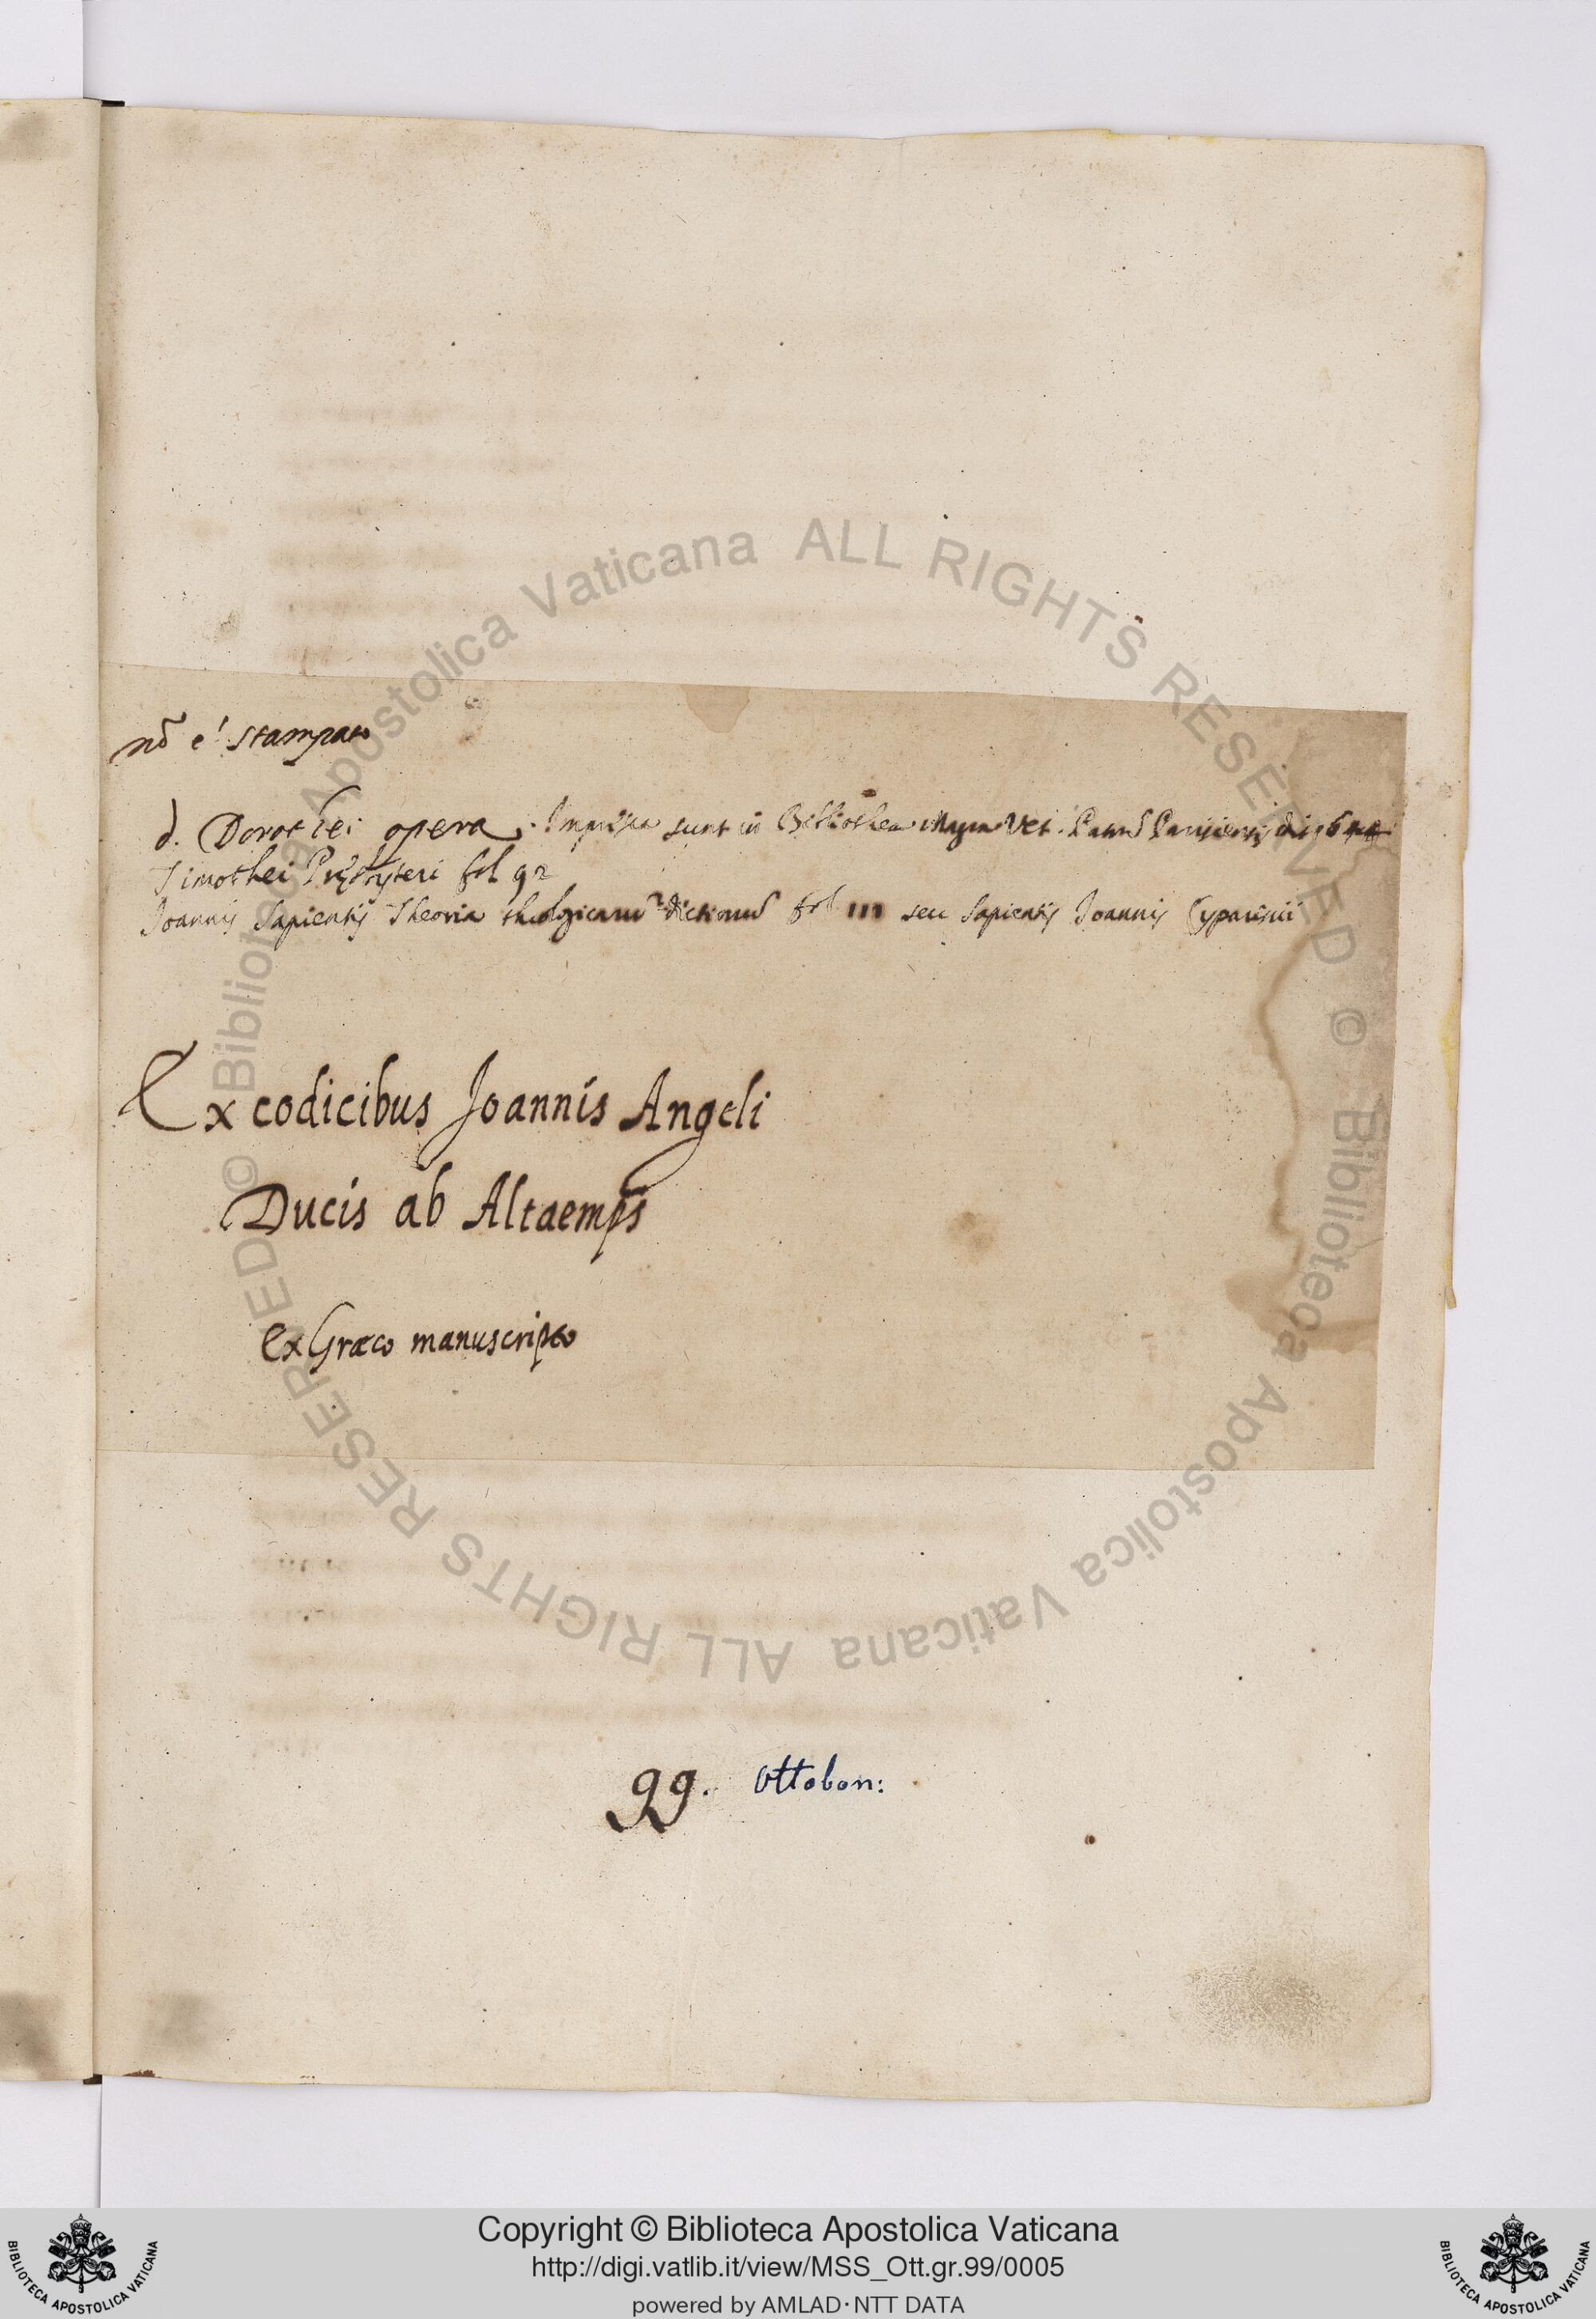 nō e' stampato
d. Dorothei opera. Impressa sunt in Bibliotheca Magna Vet. Patrū Parisiensis
Timothei Pręsbyteri fol 92
Joannis Sapientis Theoria theologicarū dictionū fol 111 seu Sapientis Joannis Cyparissii
Ex codicibus Joannis Angeli
Ducis ab Altaemps
Ex Græco manuscripto
99. Ottobon:
© Biblioteca Apostolica Vaticana ALL RIGHTS RESERVED © Biblioteca Apostolica Vaticana ALL RIGHTS RESERVED
Copyright © Biblioteca Apostolica Vaticana
http://digi.vatlib.it/view/MSS_Ott.gr.99/0005
powered by AMLAD·NTT DATA
BIBLIOTECA APOSTOLICA VATICANA
BIBLIOTECA APOSTOLICA VATICANA